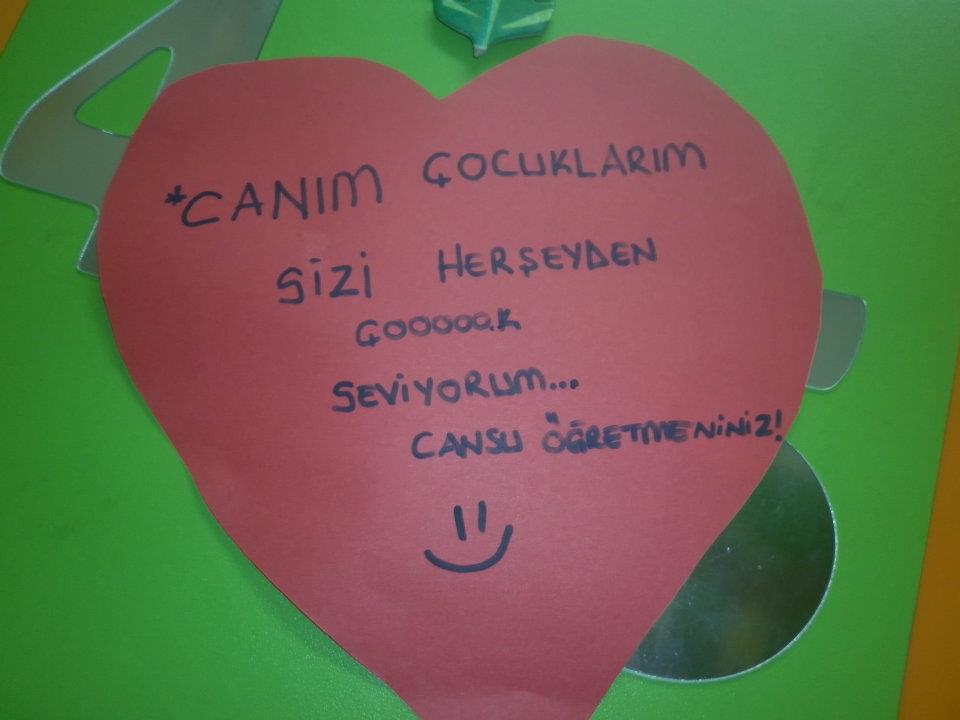 *CANIM ÇOCUKLARIM
SİZİ HERŞEYDEN
ÇOOOOO.K
SEVİYORUM...
CANSU ÖĞRETMENİNİZ!